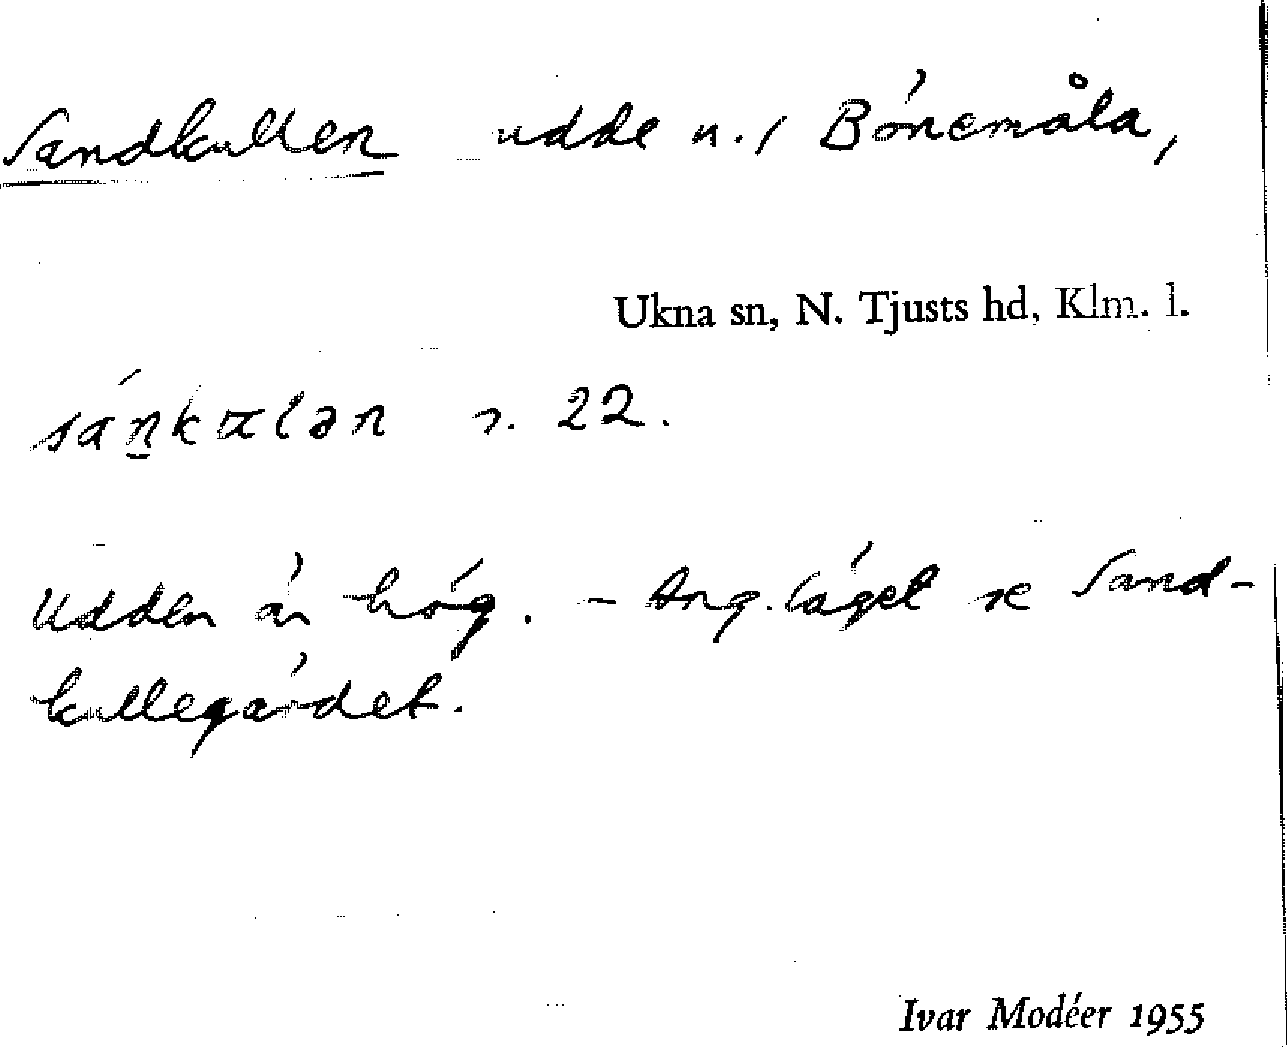 Sandkullen udde n. / Bönemåla,
Ukna sn, N. Tjusts hd, Klm. l.
sáṉkꭤlən s. 22.
Udden är hög. – Ang. läget se Sand-
kullegärdet.
Ivar Modéer 1955